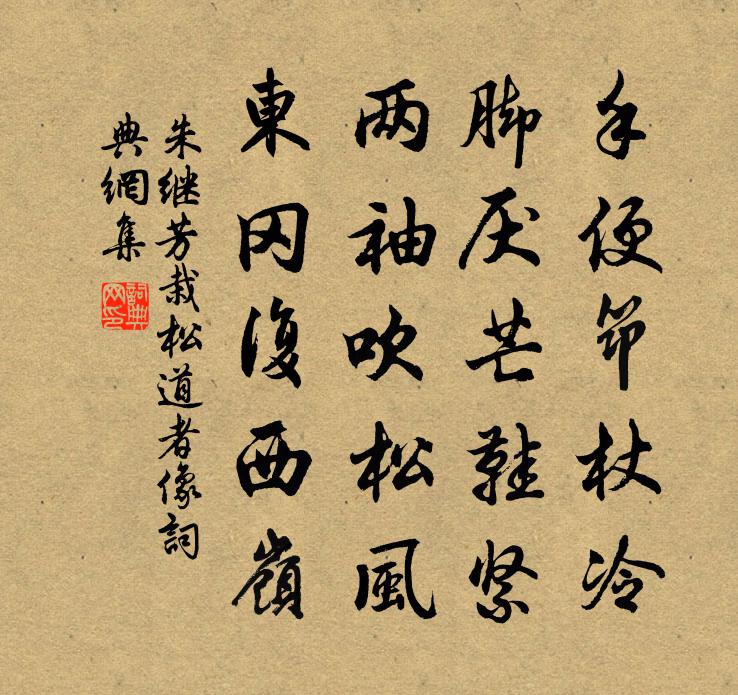 手便笻杖冷
脚厌芒鞋紧
两袖吹松風
東冈復西嶺
朱继芳栽松道者像詞
典網集
詞典网印